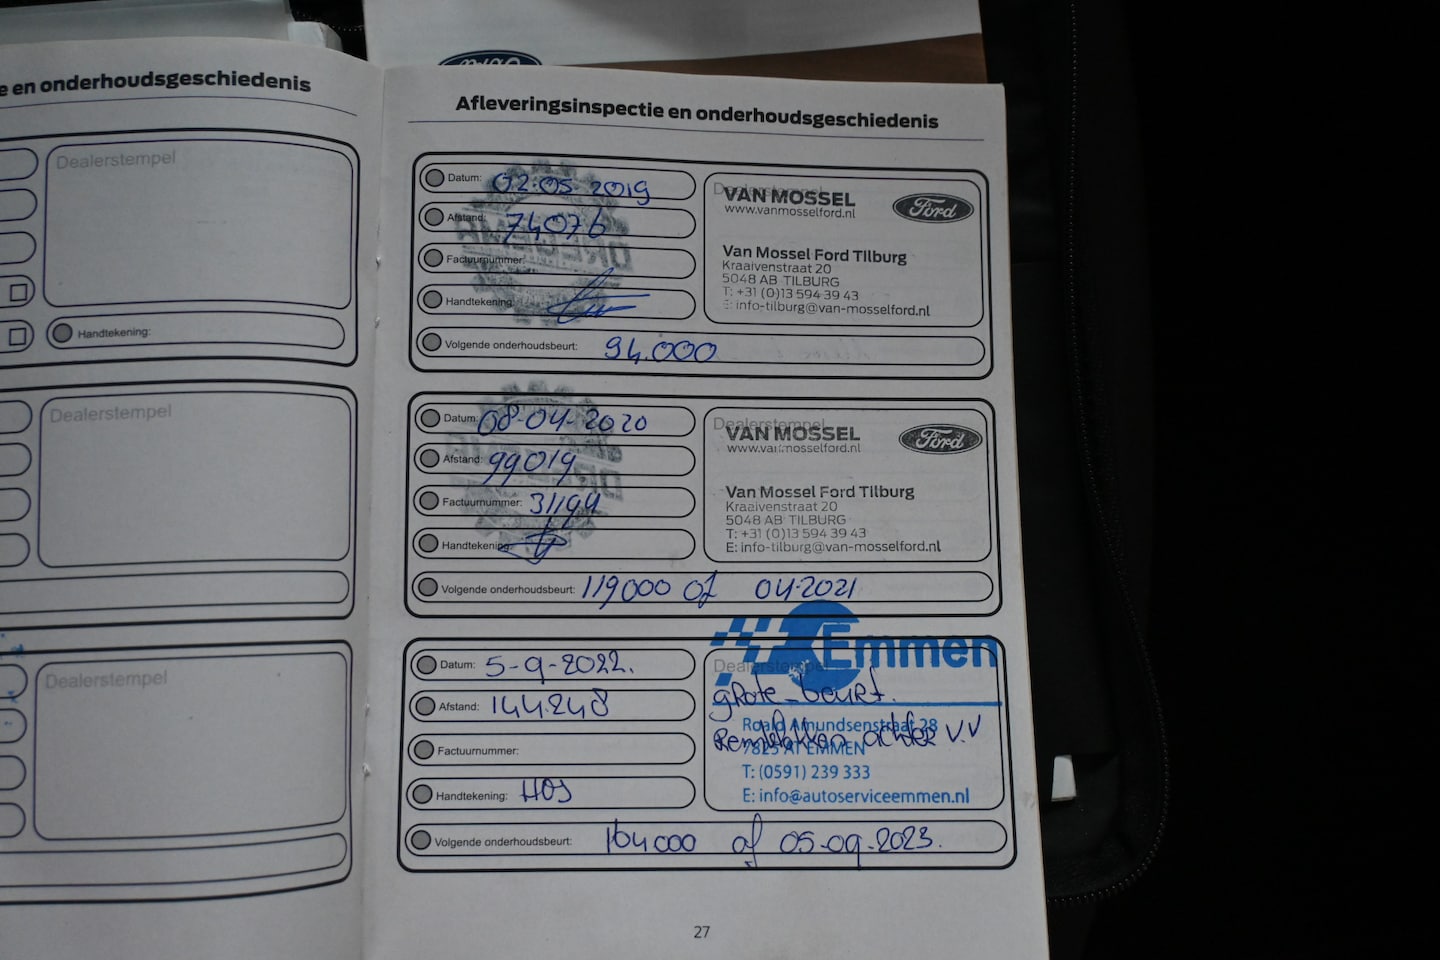 e en onderhoudsgeschiedenis
Dealerstempel
Handtekening:
Dealerstempel
Dealerstempel
Afleveringsinspectie en onderhoudsgeschiedenis
Datum: 02.05 2019
Afstand: 74076
Factuurnummer:
Handtekening:
Volgende onderhoudsbeurt: 94.000
Dealerstempel
VAN MOSSEL
www.vanmosselford.nl
Ford
Van Mossel Ford Tilburg
Kraaivenstraat 20
5048 AB TILBURG
T: +31 (0)13 594 39 43
E: info-tilburg@van-mosselford.nl
Datum: 08-04-2020
Afstand: 99019
Factuurnummer: 31194
Handtekening:
Volgende onderhoudsbeurt: 119000 of 04-2021
Dealerstempel
VAN MOSSEL
www.vanmosselford.nl
Ford
Van Mossel Ford Tilburg
Kraaivenstraat 20
5048 AB TILBURG
T: +31 (0)13 594 39 43
E: info-tilburg@van-mosselford.nl
Datum: 5-9-2022.
Afstand: 144.248
Factuurnummer:
Handtekening: HOS
Volgende onderhoudsbeurt: 164000 of 05-09-2023.
Emmen
Dealerstempel
grote beurt.
Roald Amundsenstraat 28
Remblokken achter V.V
7825 AP EMMEN
T: (0591) 239 333
E: info@autoserviceemmen.nl
27